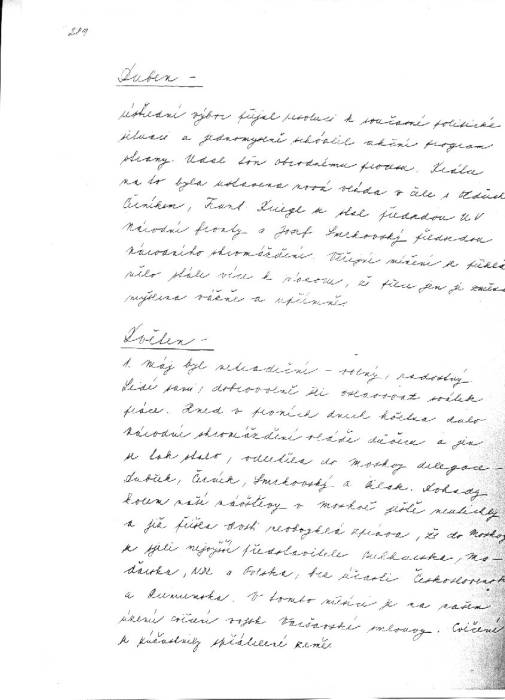 219
Duben -
ústřední výbor přijal resoluci k současné politické
situaci a jednomyslně schválil akční program
strany. Udal tón obrodnému procesu. Krátce
na to byla ustavena nová vláda v čele s Oldřich
Černíkem, Frant. Kriegl se stal předsedou ÚV
Národní fronty a Josef Smrkovský předsedou
Národního shromáždění. Veřejné mínění se
stále více k názoru, že
myšlena vážně a upřímně.
Květen -
1. máj byl netradiční - volný, radostný
Lidé sami, dobrovolně šli oslavovat svátek
práce. Hned v prvních dnech května dalo
Národní shromáždění vládě důvěru a jen
se tak stalo, odletěla do Moskvy delegace -
Dubček, Černík, Smrkovský a Bilak. Dohady
kolem naší návštěvy v Moskvě ještě neutichly
a již přišla dosti neobvyklá zpráva, že do Moskvy
se sjeli nejvyšší představitelé Bulharska, Ma-
ďarska, NDR a Polska, bez účasti Českosloven
a Rumunska. V tomto měsíci je na našem
území cvičení vojsk Varšavské smlouvy. Cvičení
se zúčastnily spřátelené země.